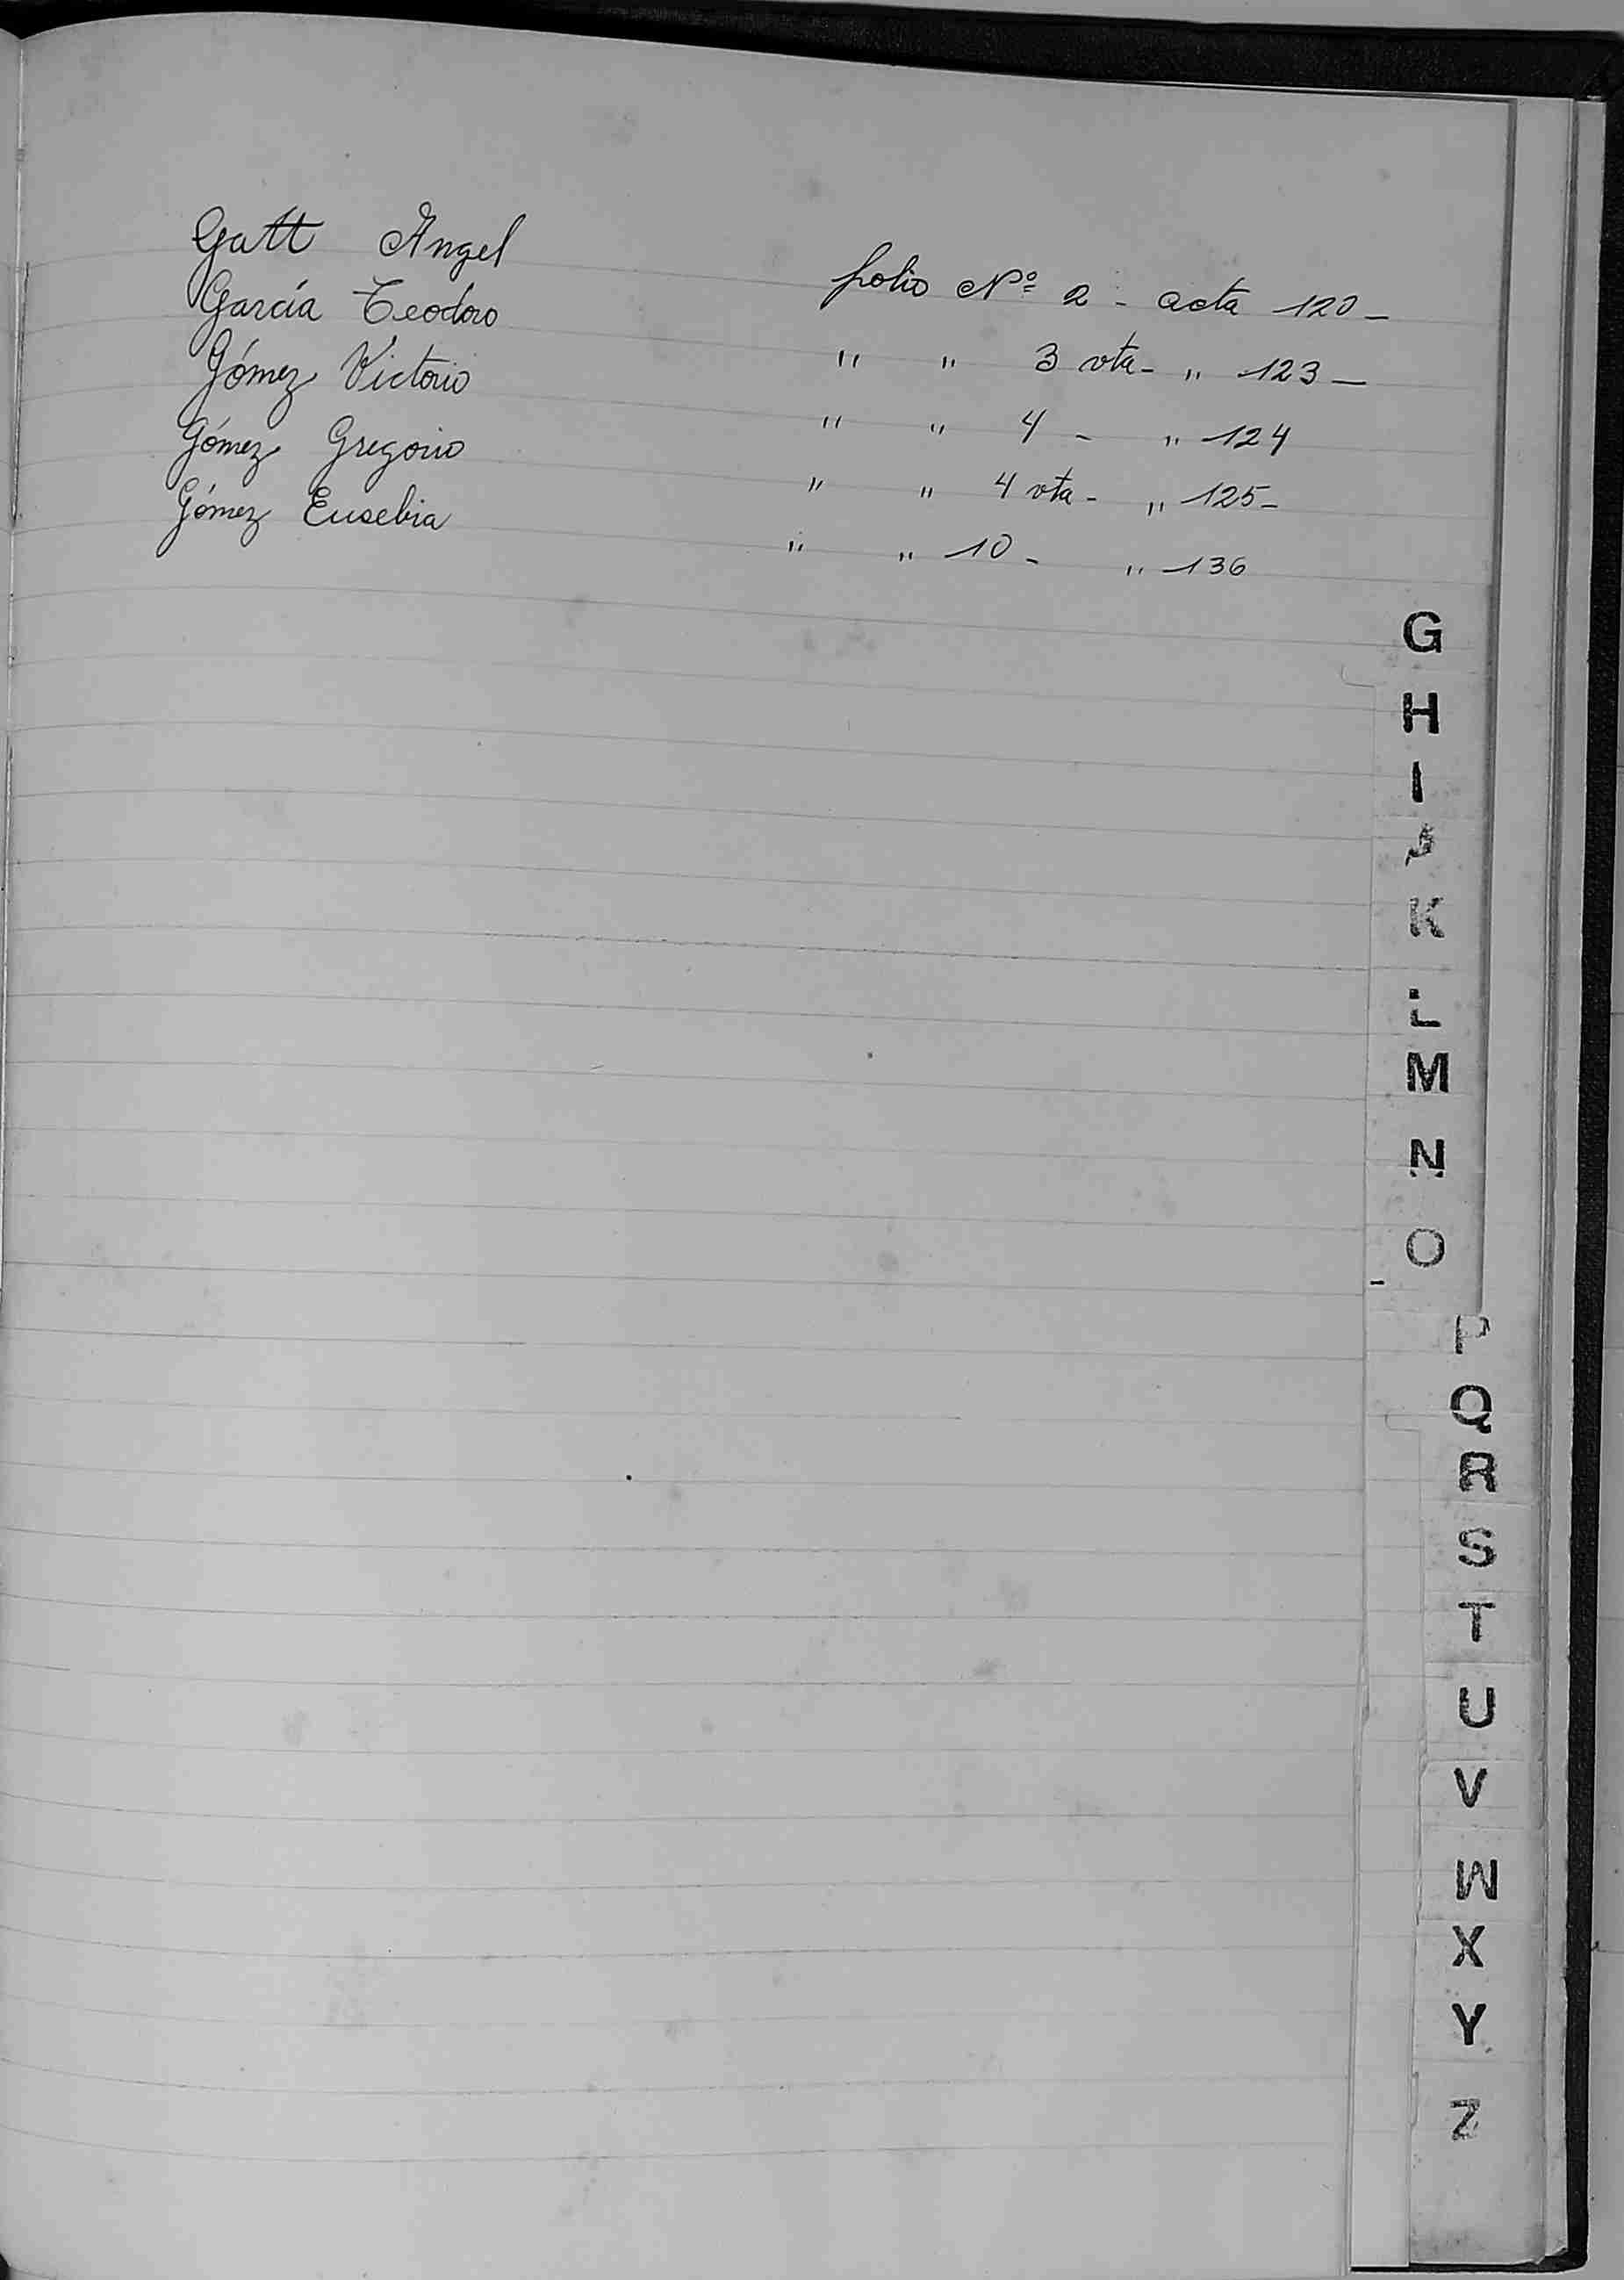 Gatt Angel folio Nº 2 - acta 120 -
García Teodoro " " 3 vta - " 123 -
Gómez Victorio " " 4 - " 124
Gómez Gregorio " " 4 vta - " 125 -
Gómez Eusebia " " 10 - " 136
G
H
I
J
K
L
M
N
O
P
Q
R
S
T
U
V
W
X
Y
Z